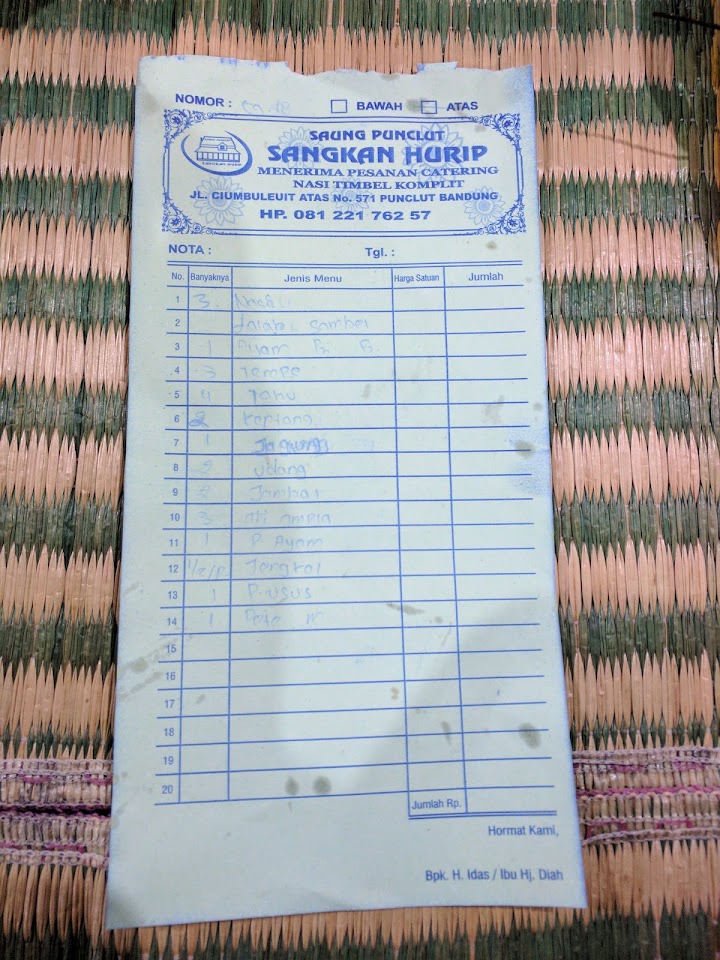 NOMOR : BAWAH ATAS
SAUNG PUNCLUT
SANGKAN HURIP
MENERIMA PESANAN CATERING
NASI TIMBEL KOMPLIT
JL. CIUMBULEUIT ATAS No. 571 PUNCLUT BANDUNG
HP. 081 221 762 57
NOTA : Tgl. :
No. Banyaknya Jenis Menu Harga Satuan Jumlah
1 3
2 lalab sambel
3 1 Ayam B. B.
4 3 Tempe
5 4 Tahu
6 2
7 1 Jagung
8 2 udang
9 2 Jambal
10 3 ati ampla
11 1 P Ayam
12 1/2/P. Jengkol
13 1 P. usus
14 1 Pete m
15
16
17
18
19
20
Jumlah Rp.
Hormat Kami,
Bpk. H. Idas / Ibu Hj. Diah